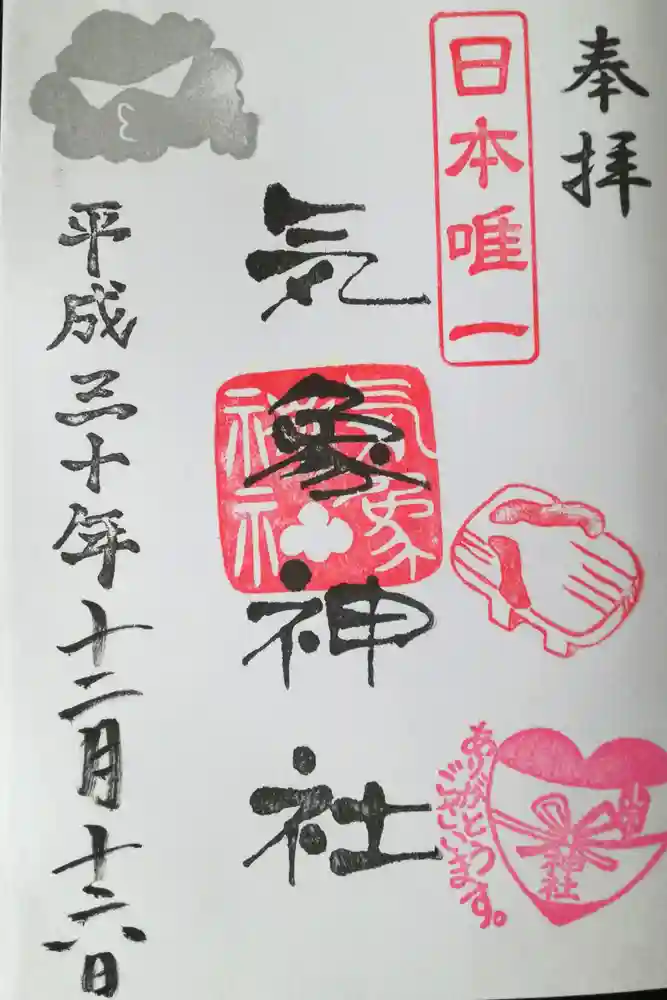 奉拝
日本唯一
気象神社
氣象
神社
ありがとう
ございます。
神社
平成三十年十二月十六日